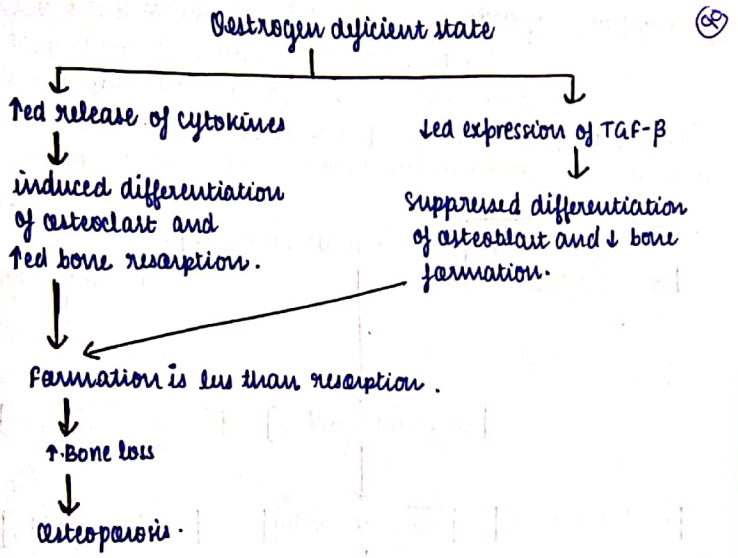 Oestrogen deficient state
↑ed release of cytokines
↓ed expression of TGF-β
induced differentiation
of osteoclast and
↑ed bone resorption.
suppressed differentiation
of osteoblast and ↓ bone
formation.
Formation is less than resorption.
↑ Bone loss
Osteoporosis.